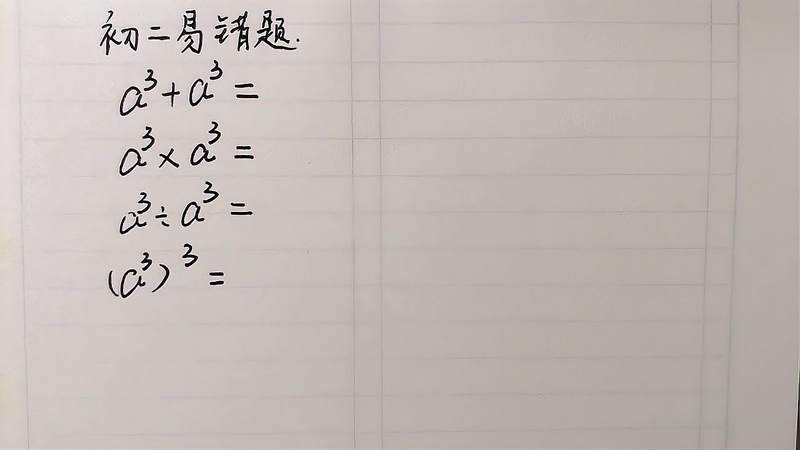 初二易错题.
a³+a³=
a³×a³=
a³÷a³=
(a³)³=